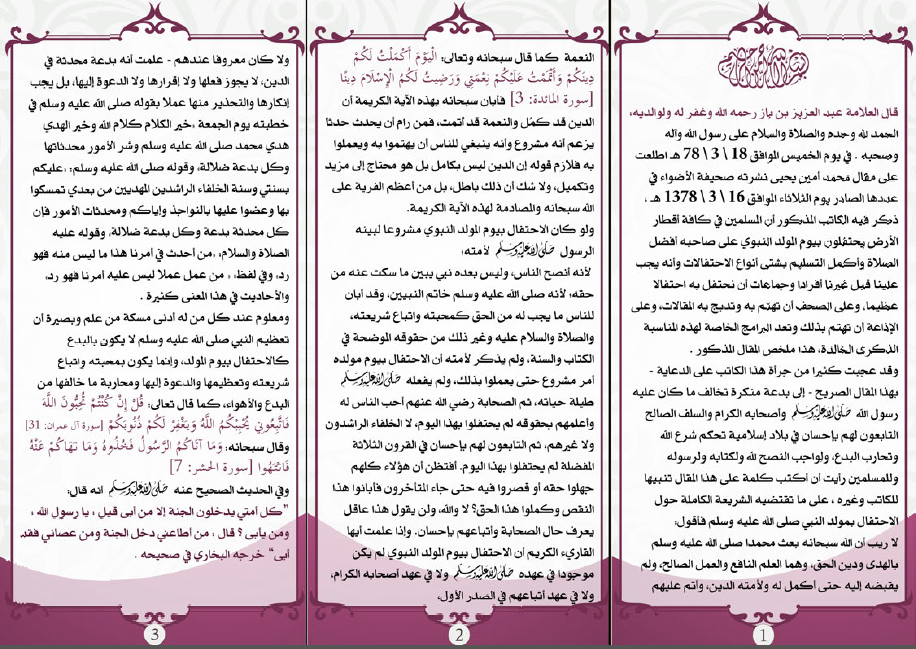 بسم الله الرحمن الرحيم
قال العلامة عبد العزيز بن باز رحمه الله وغفر له ولوالديه،
الحمد لله وحده والصلاة والسلام على رسول الله وآله
وصحبه . في يوم الخميس الموافق 18 \ 3 \ 78 هـ اطلعت
على مقال محمد أمين يحيى نشرته صحيفة الأضواء في
عددها الصادر يوم الثلاثاء الموافق 16 \ 3 \ 1378 هـ ،
ذكر فيه الكاتب المذكور أن المسلمين في كافة أقطار
الأرض يحتفلون بيوم المولد النبوي على صاحبه أفضل
الصلاة وأكمل التسليم بشتى أنواع الاحتفالات وأنه يجب
علينا قبل غيرنا أفرادا وجماعات أن نحتفل به احتفالا
عظيما، وعلى الصحف أن تهتم به وتدبج به المقالات، وعلى
الإذاعة أن تهتم بذلك وتعد البرامج الخاصة لهذه المناسبة
الذكرى الخالدة، هذا ملخص المقال المذكور .
وقد عجبت كثيرا من جرأة هذا الكاتب على الدعاية -
بهذا المقال الصريح - إلى بدعة منكرة تخالف ما كان عليه
رسول الله صلى الله عليه وسلم وأصحابه الكرام والسلف الصالح
التابعون لهم بإحسان في بلاد إسلامية تحكم شرع الله
وتحارب البدع، ولواجب النصح لله ولكتابه ولرسوله
وللمسلمين رأيت أن أكتب كلمة على هذا المقال تنبيها
للكاتب وغيره ، على ما تقتضيه الشريعة الكاملة حول
الاحتفال بمولد النبي صلى الله عليه وسلم فأقول:
لا ريب أن الله سبحانه بعث محمدا صلى الله عليه وسلم
بالهدى ودين الحق، وهما العلم النافع والعمل الصالح، ولم
يقبضه إليه حتى أكمل له ولأمته الدين، وأتم عليهم
1
النعمة كما قال سبحانه وتعالى: الْيَوْمَ أَكْمَلْتُ لَكُمْ
دِينَكُمْ وَأَتْمَمْتُ عَلَيْكُمْ نِعْمَتِي وَرَضِيتُ لَكُمُ الْإِسْلَامَ دِينًا
[سورة المائدة: 3] فأبان سبحانه بهذه الآية الكريمة أن
الدين قد كمُل والنعمة قد أتمت، فمن رام أن يحدث حدثا
يزعم أنه مشروع وأنه ينبغي للناس أن يهتموا به ويعملوا
به فلازم قوله إن الدين ليس بكامل بل هو محتاج إلى مزيد
وتكميل، ولا شك أن ذلك باطل، بل من أعظم الفرية على
الله سبحانه والمصادمة لهذه الآية الكريمة.
ولو كان الاحتفال بيوم المولد النبوي مشروعا لبينه
الرسول صلى الله عليه وسلم لأمته؛
لأنه أنصح الناس، وليس بعده نبي يبين ما سكت عنه من
حقه؛ لأنه صلى الله عليه وسلم خاتم النبيين، وقد أبان
للناس ما يجب له من الحق كمحبته واتباع شريعته،
والصلاة والسلام عليه وغير ذلك من حقوقه الموضحة في
الكتاب والسنة، ولم يذكر لأمته أن الاحتفال بيوم مولده
أمر مشروع حتى يعملوا بذلك، ولم يفعله صلى الله عليه وسلم
طيلة حياته، ثم الصحابة رضي الله عنهم أحب الناس له
وأعلمهم بحقوقه لم يحتفلوا بهذا اليوم، لا الخلفاء الراشدون
ولا غيرهم، ثم التابعون لهم بإحسان في القرون الثلاثة
المفضلة لم يحتفلوا بهذا اليوم. أفتظن أن هؤلاء كلهم
جهلوا حقه أو قصروا فيه حتى جاء المتأخرون فأبانوا هذا
النقص وكملوا هذا الحق؟ لا والله، ولن يقول هذا عاقل
يعرف حال الصحابة وأتباعهم بإحسان. وإذا علمت أيها
القاريء الكريم أن الاحتفال بيوم المولد النبوي لم يكن
موجودا في عهده صلى الله عليه وسلم ولا في عهد أصحابه الكرام،
ولا في عهد أتباعهم في الصدر الأول،
2
ولا كان معروفا عندهم - علمت أنه بدعة محدثة في
الدين، لا يجوز فعلها ولا إقرارها ولا الدعوة إليها، بل يجب
إنكارها والتحذير منها عملا بقوله صلى الله عليه وسلم في
خطبته يوم الجمعة ،خير الكلام كلام الله وخير الهدي
هدي محمد صلى الله عليه وسلم وشر الأمور محدثاتها
وكل بدعة ضلالة، وقوله صلى الله عليه وسلم: ،عليكم
بسنتي وسنة الخلفاء الراشدين المهديين من بعدي تمسكوا
بها وعضوا عليها بالنواجذ وإياكم ومحدثات الأمور فإن
كل محدثة بدعة وكل بدعة ضلالة، وقوله عليه
الصلاة والسلام: ،من أحدث في أمرنا هذا ما ليس منه فهو
رد، وفي لفظ: ، من عمل عملا ليس عليه أمرنا فهو رد،
والأحاديث في هذا المعنى كثيرة .
ومعلوم عند كل من له أدنى مسكة من علم وبصيرة أن
تعظيم النبي صلى الله عليه وسلم لا يكون بالبدع
كالاحتفال بيوم المولد، وإنما يكون بمحبته واتباع
شريعته وتعظيمها والدعوة إليها ومحاربة ما خالفها من
البدع والأهواء، كما قال تعالى: قُلْ إِنْ كُنْتُمْ تُحِبُّونَ اللَّهَ
فَاتَّبِعُونِي يُحْبِبْكُمُ اللَّهُ وَيَغْفِرْ لَكُمْ ذُنُوبَكُمْ [سورة آل عمران: 31]
وقال سبحانه: وَمَا آتَاكُمُ الرَّسُولُ فَخُذُوهُ وَمَا نَهَاكُمْ عَنْهُ
فَانْتَهُوا [سورة الحشر: 7]
وفي الحديث الصحيح عنه صلى الله عليه وسلم أنه قال:
"كل أمتي يدخلون الجنة إلا من أبى قيل ، يا رسول الله ،
ومن يأبى ؟ قال : من أطاعني دخل الجنة ومن عصاني فقد
أبى" خرجه البخاري في صحيحه .
3